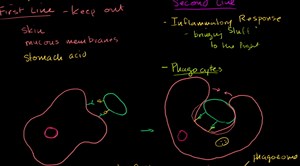 First Line - Keep out
skin
mucous membranes
stomach acid
Second Line
- Inflammatory Response
- bringing stuff
to the fight
- Phagocytes
phagosome